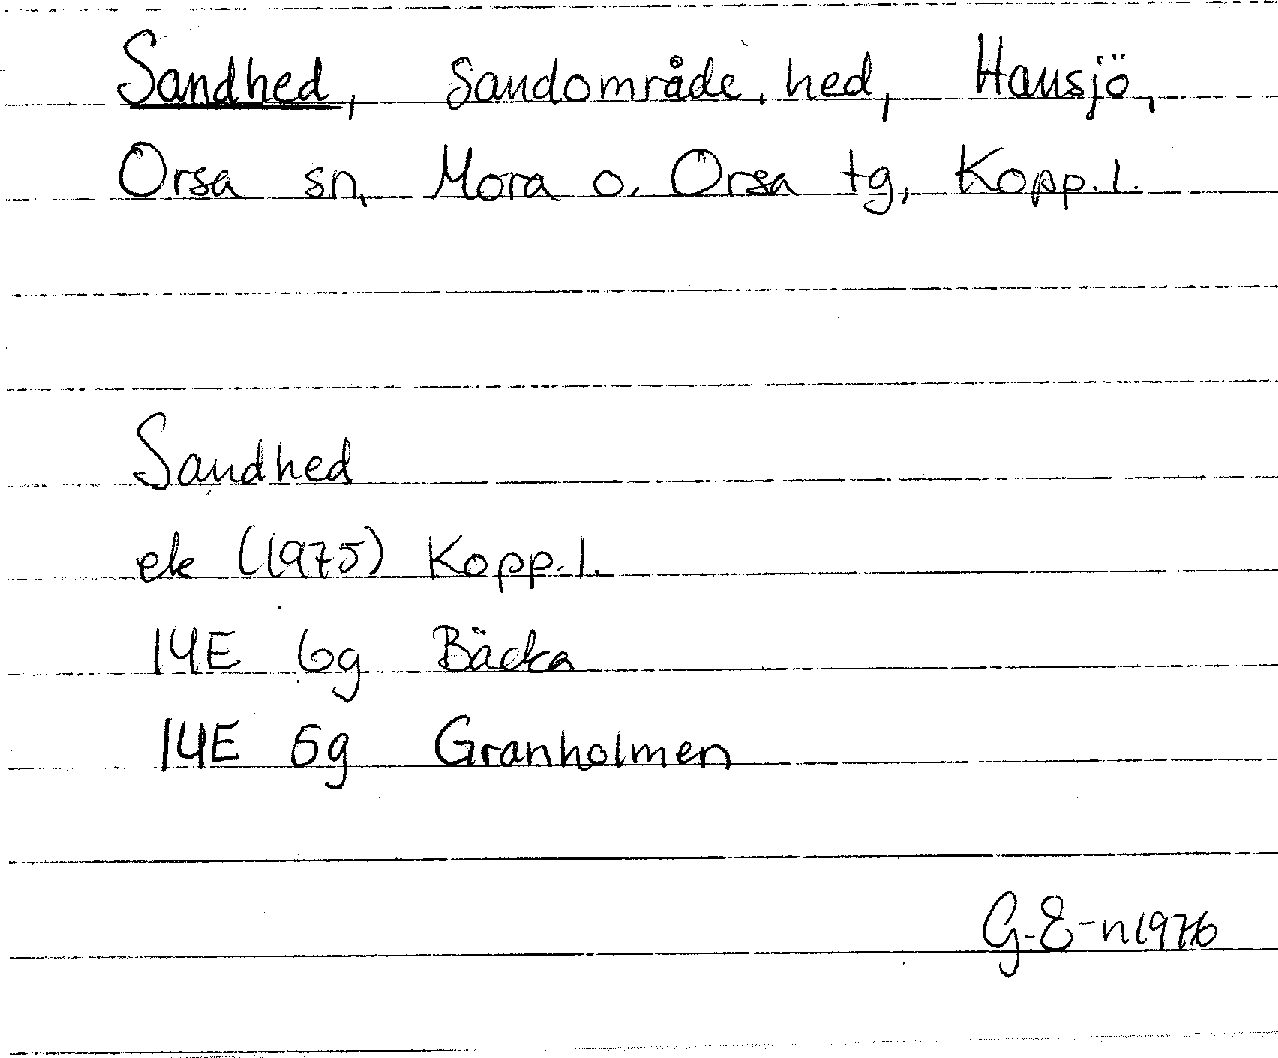 Sandhed, Sandområde, hed, Hansjö,
Orsa sn, Mora o. Orsa tg, Kopp.l.
Sandhed
ek (1975) Kopp.l.
14E 6g Bäcka
14E 5g Granholmen
G.E-n 1976